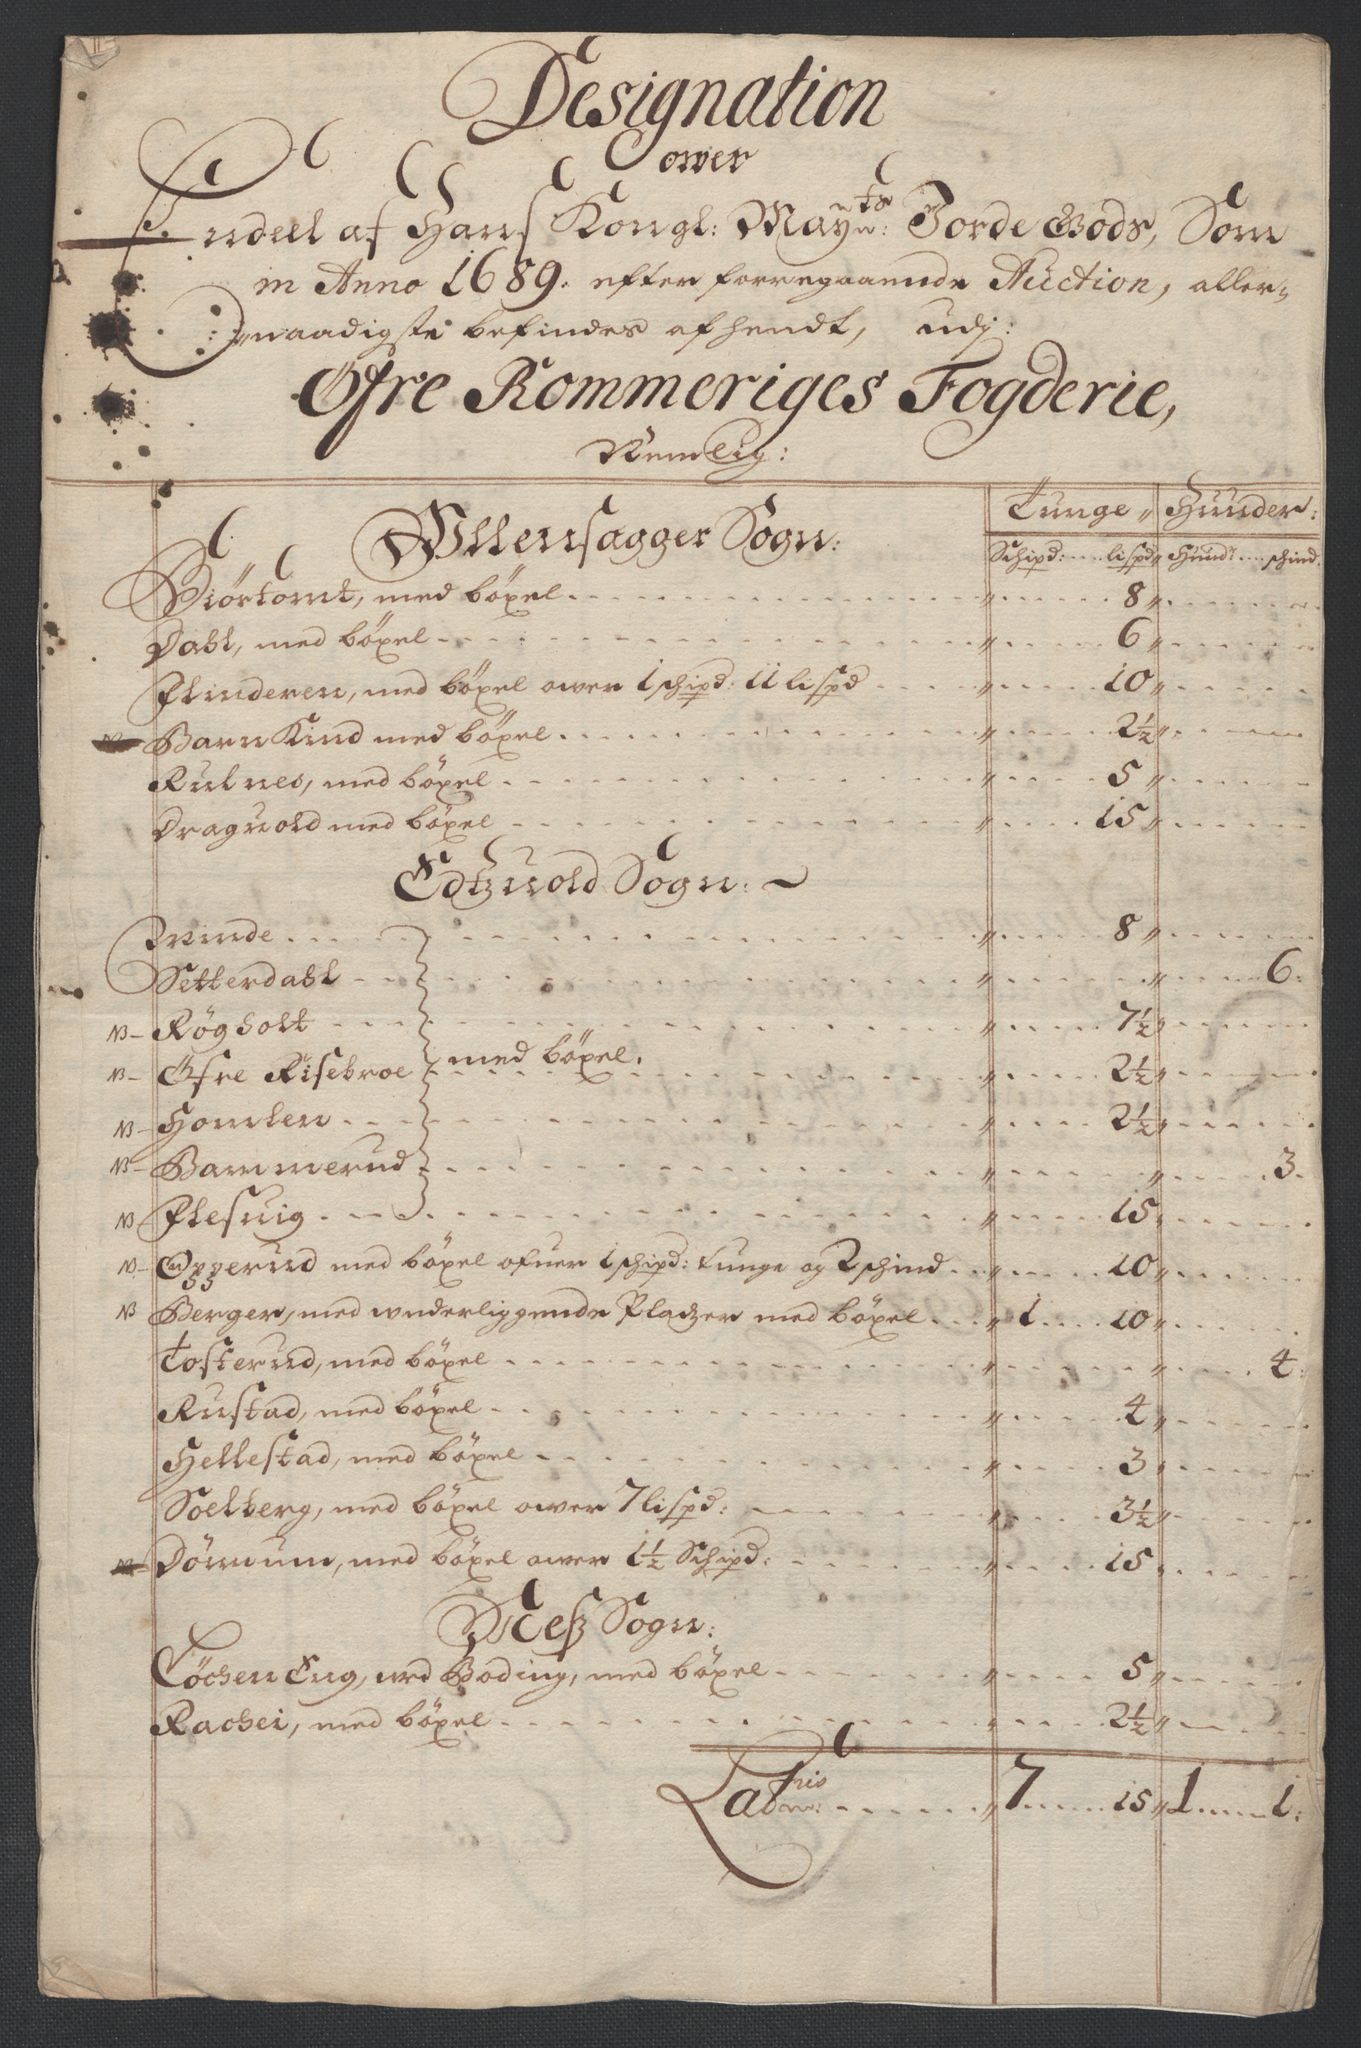 Designation
ower
Endeel af Hans Kongl: Mayts: Jorde Gods, Som
in Anno 1689. efter forregaaende Auction, aller=
naadigste befindes afhendt, udj:
Øfre Rommeriges Fogderie,
Nemlig:
Tunge Huuder:
Schipd: lispd Hund: schind
Ullensagger Sogn:
Biørtomt, med böxel 8
Dahl, med böxel 6
Flinderen, med böxel ower 1 schipd: 11 lispd 10
Barn Kind med böxel 2½
Rulnes, med böxel 5
Draguold med böxel 15
Edtzuold Sogn:
Winde 8
Setterdahl 6
NB Røgholt 7½
NB Øfre Risebroe med böxel. 2½
NB Homlen 2½
NB Bammerud 3
NB Flesuig 15
NB Opperud med böxel ofuer 1 schipd: tunge og 2 schind 10
NB Berger, med underliggende Pladzer med böxel 1 10
Tosterud, med böxel 4
Rustad, med böxel 4
Hellestad, med böxel 3
Soelberg, med böxel ower 7 lispd: 3½
Dömum, med böxel ower 1½ Schipd: 15
Neß Sogn:
Löchen Eng, ved Boding, med böxel 5
Rachei, med böxel 2½
Latris 7 15 1 1